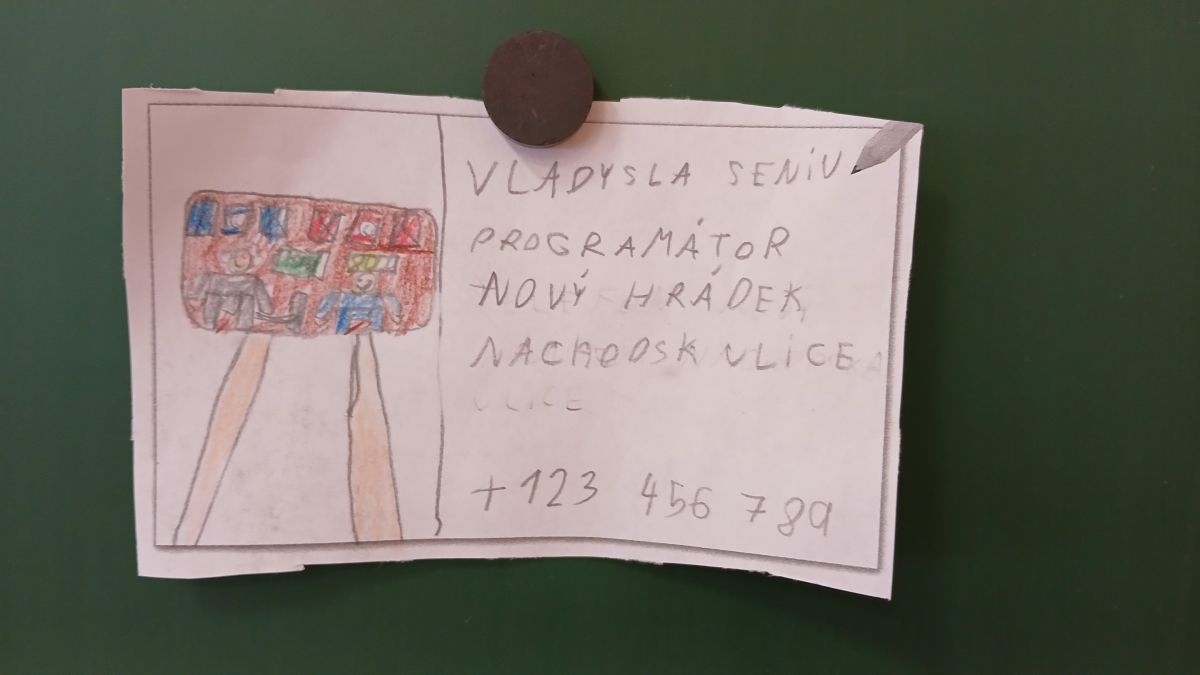 VLADYSLA SENIV
PROGRAMÁTOR
NOVÝ HRÁDEK
NACHODSK ULICE
ULICE
+123 456 789